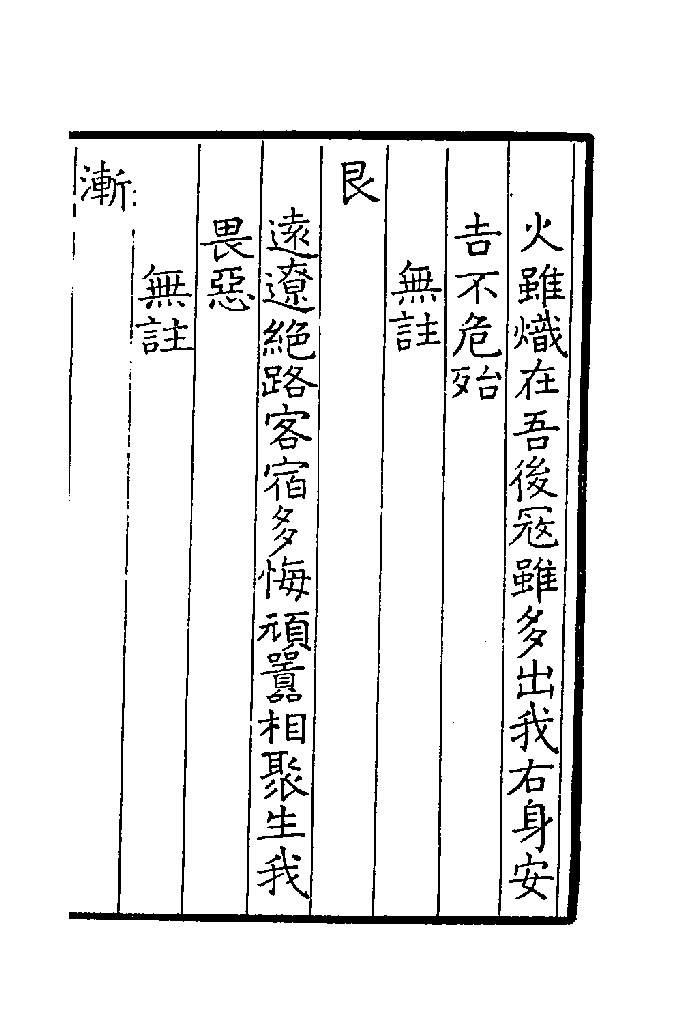 火雖熾在吾後宼雖多出我右身安
吉不危殆
無註
艮
遠遼絶路客宿多悔頑嚚相聚生我
畏惡
無註
漸